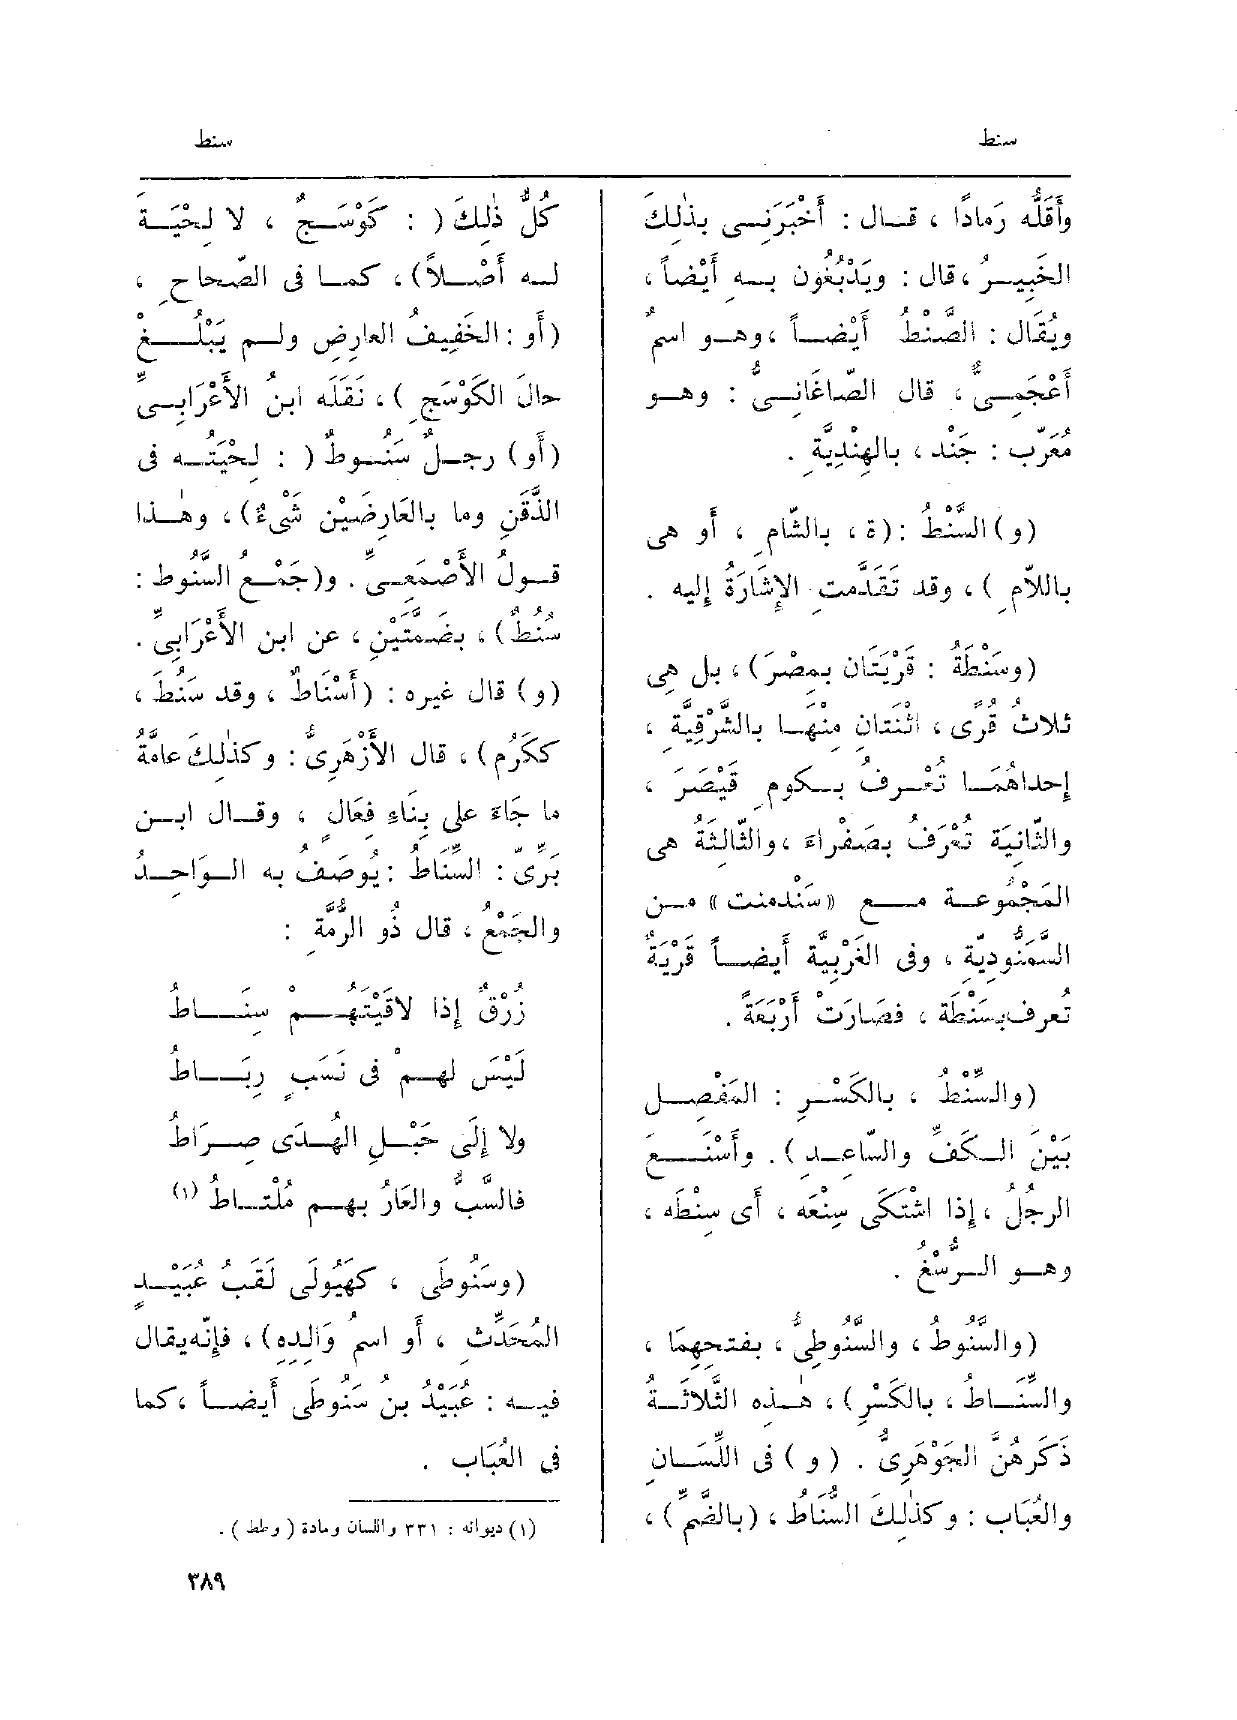 سنط
سنط
وأَقَلُّه رَمادًا ، قـال : أَخْبَرَنِـى بذٰلِكَ
الخَبِيـرُ ، قال : ويَدْبُغُون بـه أَيْضاً ،
ويُقَال : الصَّنْطُ أَيْضـاً ، وهـو اسمٌ
أَعْجَمِـىٌّ ، قال الصّاغَانِـىُّ : وهـو
مُعَرّب : جَنْد ، بالهِنْدِيَّةِ .
(و) السَّنْطُ : (ة ، بالشّامِ ، أو هى
باللاّمِ ) ، وقد تَقَدَّمتِ الإشَارَةُ إليه .
(وسَنْطَةُ : قَرْيَتَان بمِصْرَ) ، بل هِى
ثلاثُ قُرًى ، اثْنَتان مِنْهَـا بالشَّرْقِيَّةِ ،
إحداهُمَـا تُعْـرفُ بـكومِ قَيْصَرَ ،
والثّانِيَة تُعْرَفُ بصَفْراءَ ، والثّالِثَةُ هى
المَجْمُوعـة مــع «سَنْدمنت» مـن
السَّمَنُّودِيّةِ ، وفى الغَرْبِيَّةِ أيضـاً قَرْيَةٌ
تُعرف بسَنْطَة ، فصَارَتْ أَرْبَعَةً .
(والسِّنْطُ ، بالكَسْرِ : المَفْصِـل
بَيْنَ الـكَفِّ والسّاعِـد ) . وأَسْنَــعَ
الرجُلُ ، إذا اشْتَكَى سِنْعَه ، أى سِنْطَه ،
وهـو الـرُّسْغُ .
(والسَّنُوطُ ، والسَّنُوطِىُّ ، بفتحِهِمَا ،
والسِّنَـاط ، بالكَسْرِ) ، هـٰذه الثَّلاثَـةُ
ذَكَرَهُنَّ الجَوْهَرِىُّ . (و) فى اللِّسَـانِ
والعُبَاب : وكذٰلِكَ السُّنَاطُ ، (بالضَّمِّ) ،
كُلُّ ذٰلِكَ ( : كَوْسَـجٌ ، لا لِحْيَـةَ
لـه أَصْـلاً) ، كمـا فى الصّحاحِ ،
(أو : الخَفِيفُ العارِضِ ولـم يَبْلُــغْ
حالَ الكَوْسَجِ ) ، نَقَلَه ابنُ الأَعْرَابِـىِّ
(أو) رجـلٌ سَنُـوطٌ ( : لِحْيَتُـه فى
الذَّقَنِ وما بالعَارِضَيْنِ شَىْءٌ) ، وهـٰذا
قـولُ الأَصْمَعِـىِّ . و(جَمْع السَّنُوط :
سُنُطٌ) ، بضَمَّتَيْنِ ، عن ابن الأَعْرَابىِّ .
(و) قال غيره : (أَسْنَاطٌ ، وقد سَنُطَ ،
ككَرُم) ، قال الأَزْهَرِىُّ : وكذٰلِكَ عامَّةُ
ما جَاءَ على بِنَاءِ فِعَالٍ ، وقـال ابـن
بَرِّىّ : السِّنَاطُ : يُوصَفُ به الـوَاحِـدُ
والجَمْعُ ، قال ذُو الرُّمَّةِ :
زُرْقٌ إذا لاقَيْتَهُــمْ سِنَــاطُ
لَيْسَ لهـمْ فى نَسَبٍ رِبَــاطُ
ولا إِلَى حَبْـلِ الهُـدَى صِـرَاطُ
فالسَّبُّ والعَارُ بهـم مُلْتـاطُ (١)
(وسَنُوطَى ، كهَيُولَى لَقَبُ عُبَيْـدٍ
المُحَدِّثِ ، أو اسمُ وَالِدِهِ) ، فإنّه يقال
فيـه : عُبَيْدُ بنُ سَنُوطَى أيضـاً ، كما
فى العُبَاب .
(١) ديوانه : ٣٣١ واللسان ومادة ( وطط ) .
٣٨٩